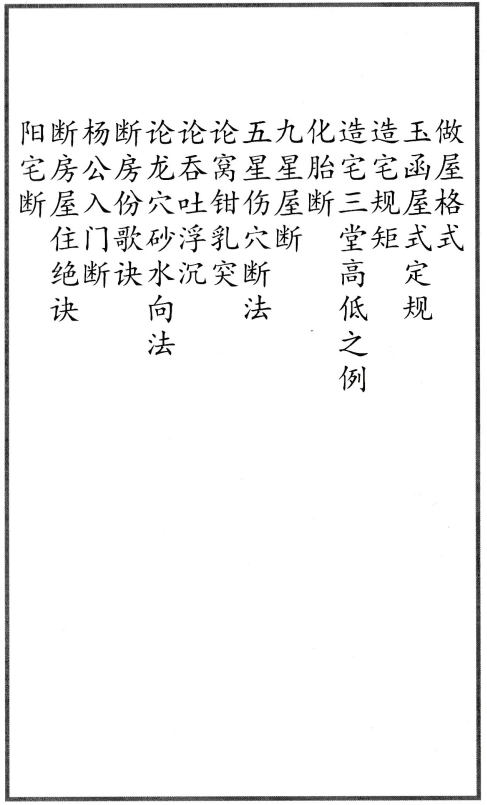 做屋格式
玉函屋式定规
造宅规矩
造宅三堂高低之例
化胎断
九星屋断
五星伤穴断法
论窝钳乳突
论吞吐浮沉
论龙穴砂水向法
断房份歌诀
杨公入门断
断房屋住绝诀
阳宅断